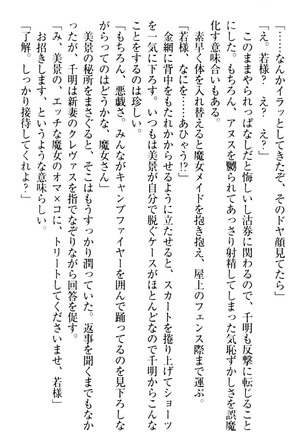 「……なんかイラッとしてきたぞ、そのドヤ顔見てたら」
「え。若様？　え？　え？」
このままやられっぱなしだと悔しいし沽券に関わるので、千明も反撃に転じること
にした。もちろん、アヌスを嬲られてあっさり射精してしまった気恥ずかしさを誤魔
化す意味合いもある。
素早く体を入れ替えると魔女メイドを抱き抱え、屋上のフェンス際まで運ぶ。
「若様、なにを……あひゃう!?」
金網に背中をもたれかからせるように立たせると、スカートを捲り上げてショーツ
を一気に下ろす。いつもは美景が自分で脱ぐケースがほとんどなので千明からこんな
ことをするのは珍しい。
「もちろん、悪戯さ。みんながキャンプファイヤーを囲んで踊ってるのを見下ろしな
がらってのはどうかな、魔女さん」
美景の秘所をまさぐると、そこはもうすっかり潤っていた。返事を聞くまでもなか
ったが、千明は新妻のクレヴァスを指でなぞりながら回答を促す。
「み、美景の、エッチな魔女のオマ×コに、トリートしてくださいませ、若様」
お招きします、というような意味らしい。
「了解。しっかり接待してくれよ？」